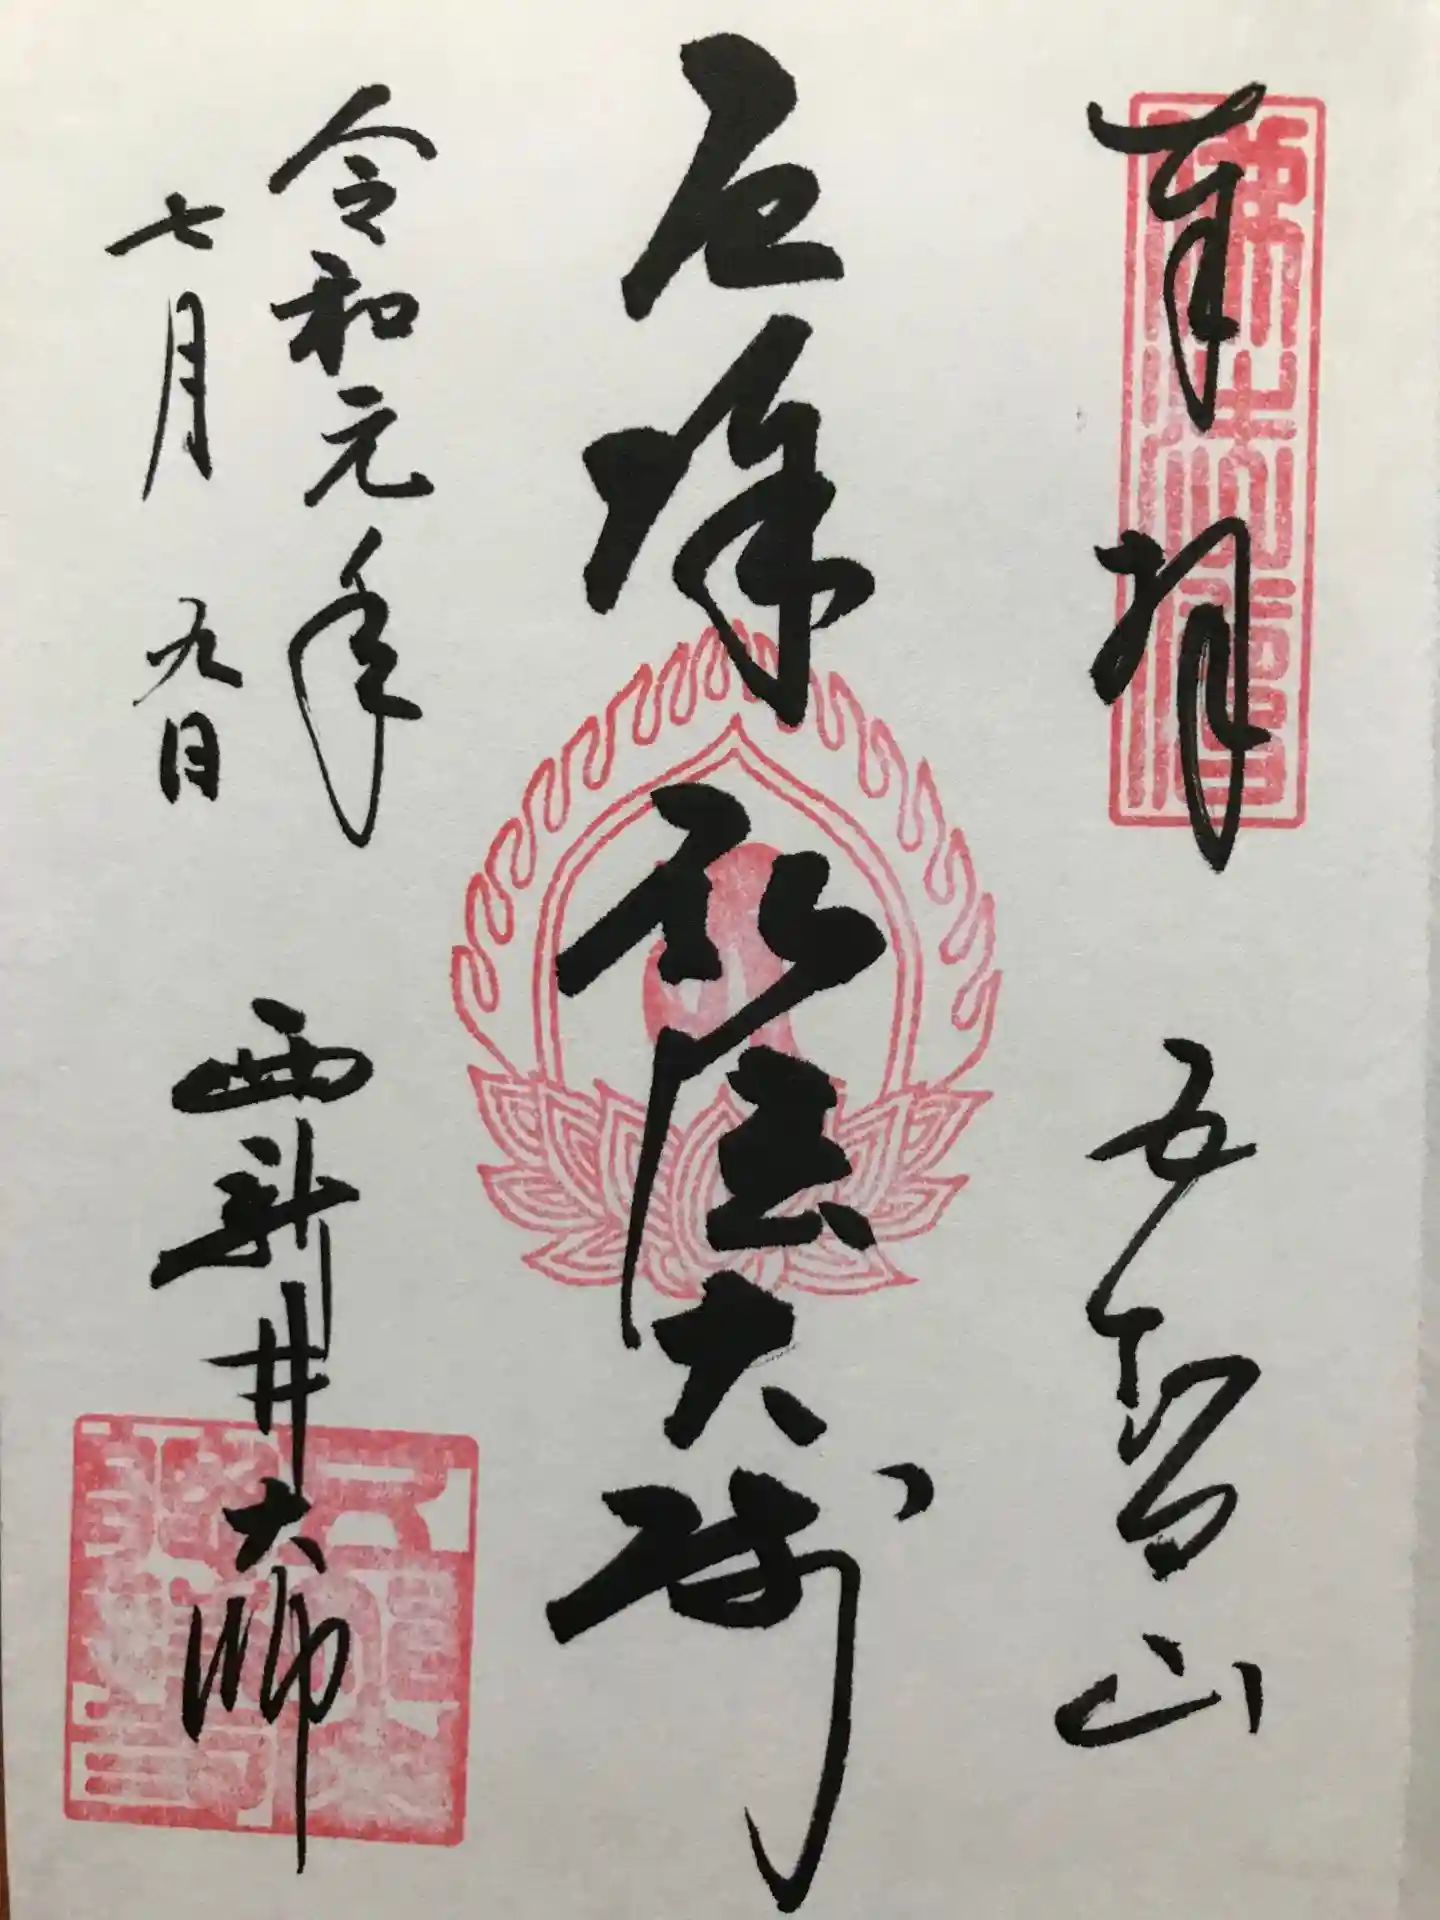 奉拝 五智山
厄除弘法大師
令和元年
七月九日
西新井大師